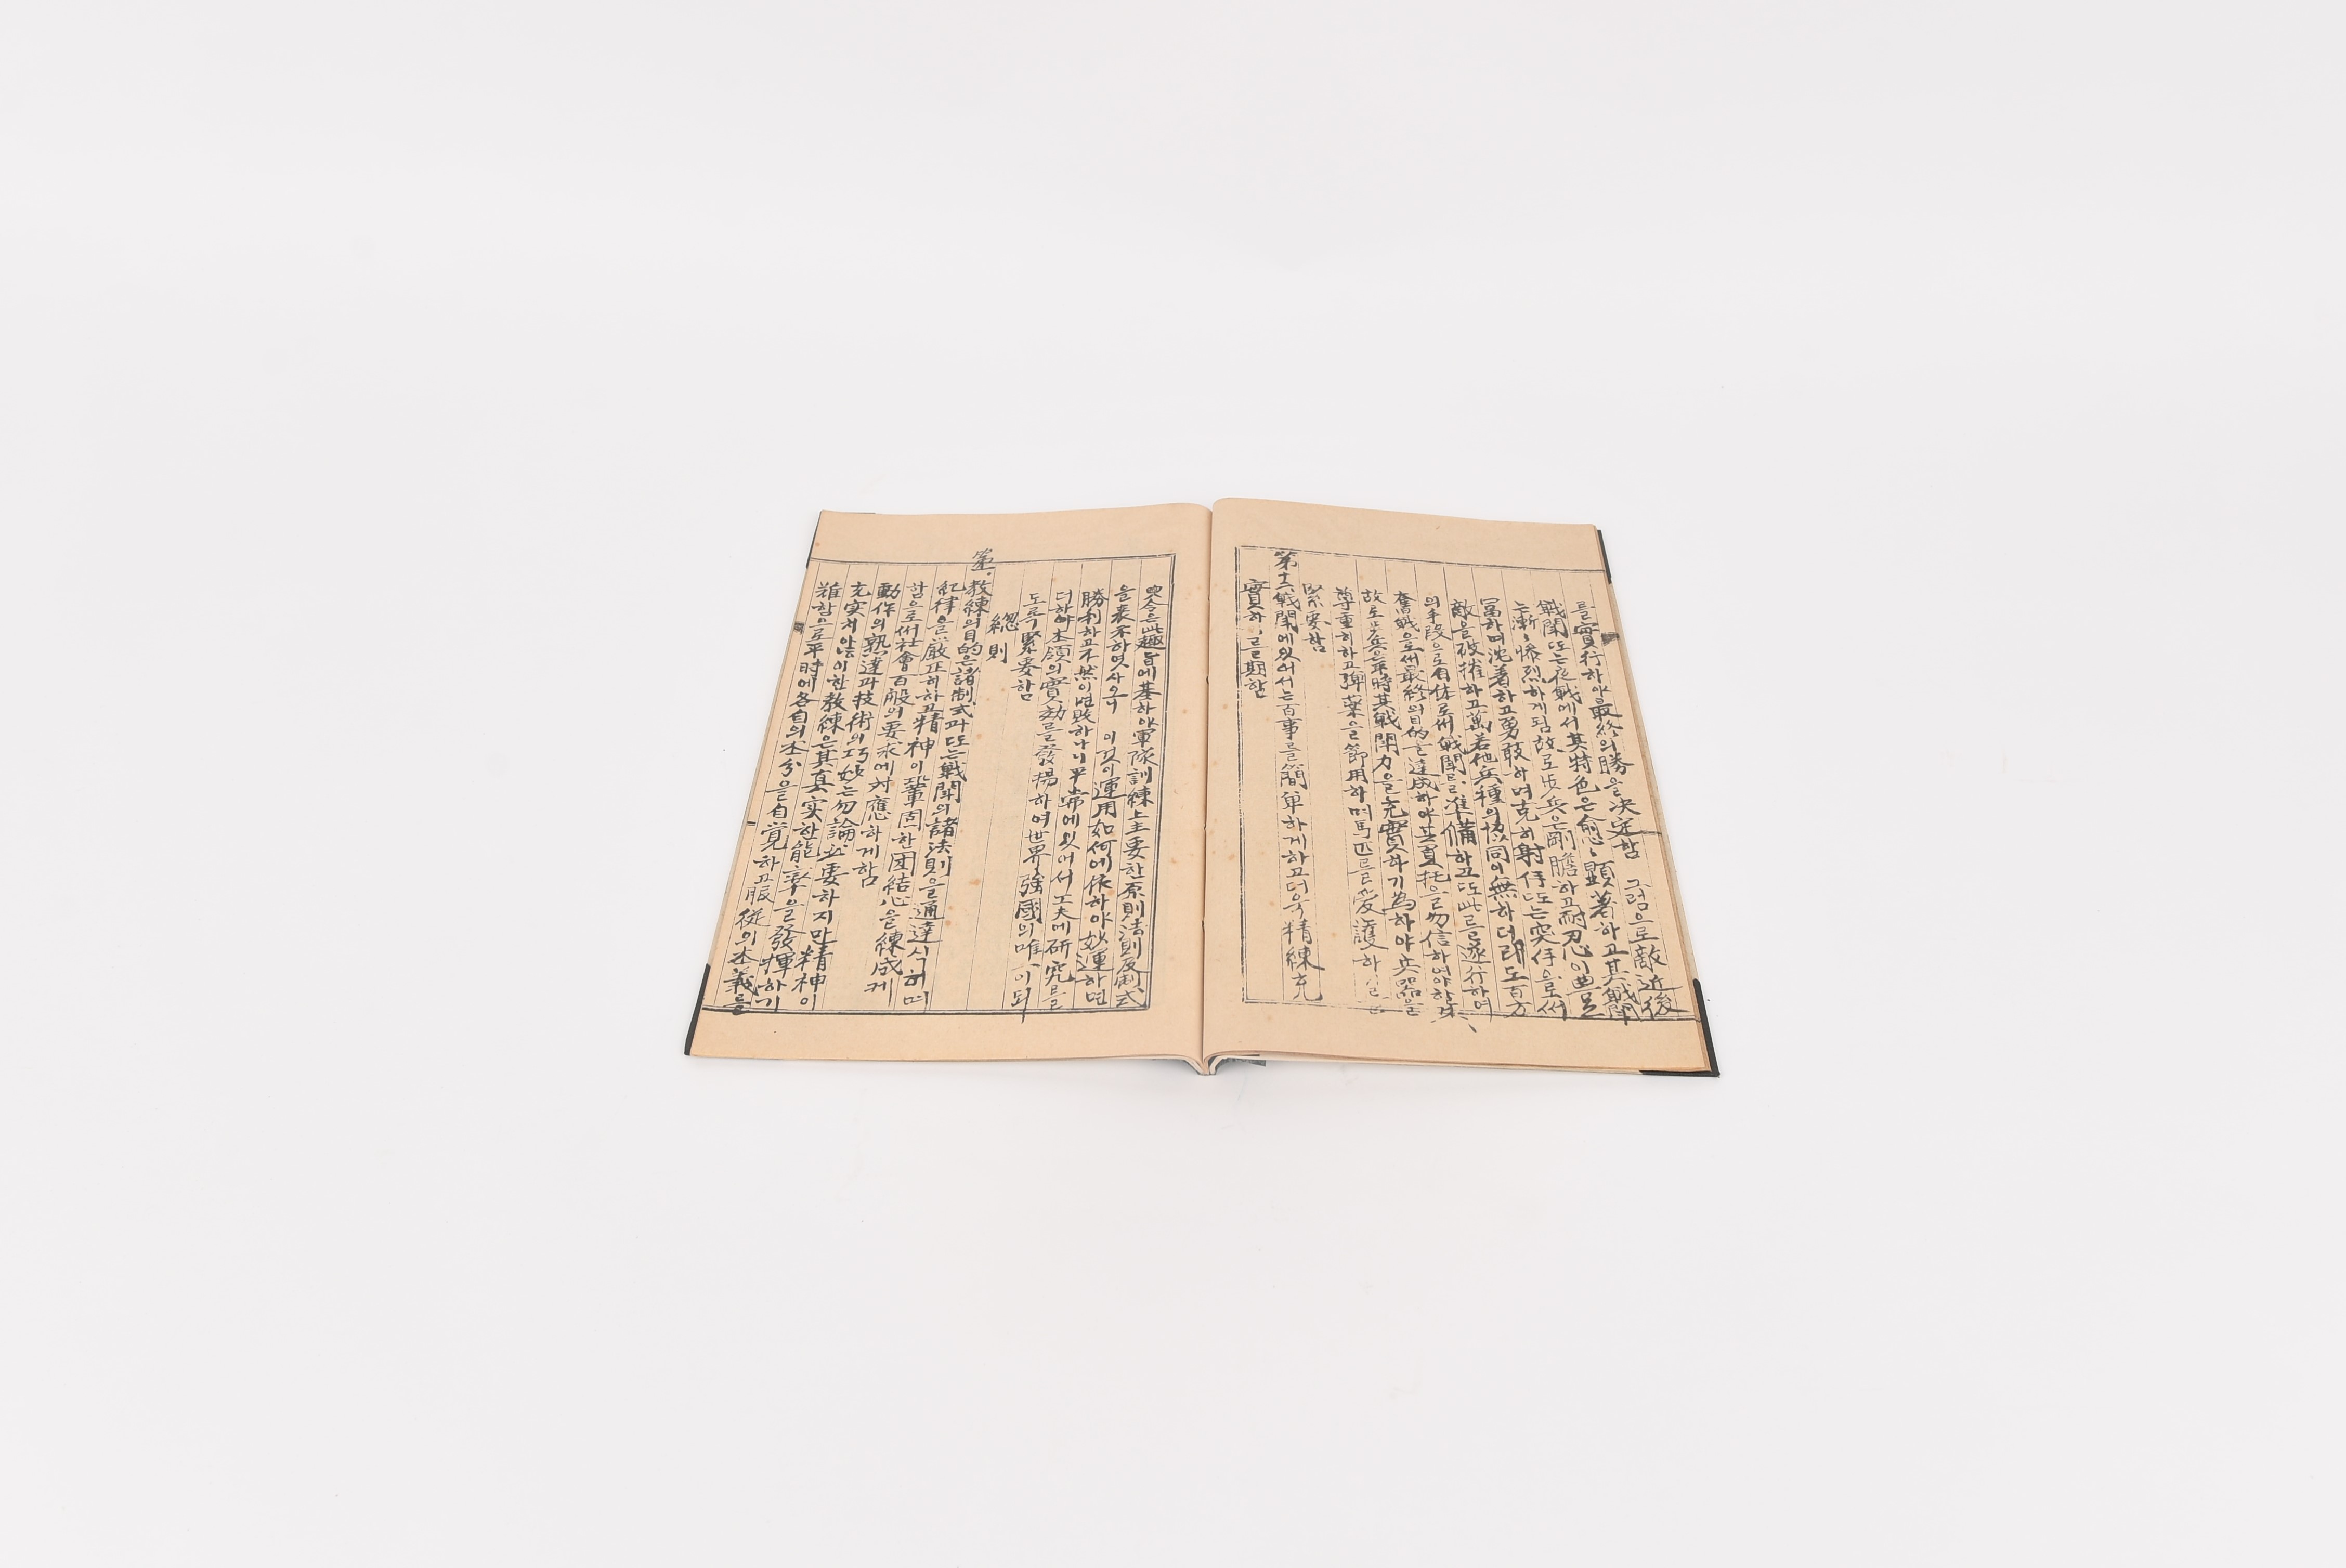 를實行하야最終의勝을決定함 그럼으로敵近後
戰鬪또는夜戰에서其特色은愈〻顯著하고其戰鬪
는漸〻慘烈하게됨故로步兵은剛膽하고耐忍이豊
富하며沈着하고勇敢하며克히射仔또는突仔으로써
敵을破摧하고萬若他兵種의協同이無하더래도百方
의手段으로自体로써戰鬪를準備하고또此를遂行하여
奮戰으로써最終의目的을達成하야其負托을勿信하여야함
故로步兵은平時其戰鬪力을充實하기為하야兵器을
尊重히하고彈藥을節用하며馬匹를愛護하
緊要함
第十一戰鬪에있어서는百事를簡單하게하고더욱精練充
實하 를期함
與令은此趣旨에基하야軍隊訓練上主要한原則法則及制式
을表示하엿사오니 이것이運用如何에依하야妙運하면
勝利하고不然이면敗하나니平常에있어서工夫에硏究를
더하야本領의實効를發揚하여世界强國의唯一이되
도록緊要함
總則
第一 敎練의目的은諸制式과또는戰鬪의諸法則을通達시키며
紀律을嚴正히하고精神이鞏固한団結心을練成케
함으로써社會百般의要求에対應하게함
動作의熟達과技術의巧妙는勿論必要하지만精神이
充実치안이한敎練은其真実한能率을發揮하기
難함으로平時에各自의本分을自覚하고服従의本義를